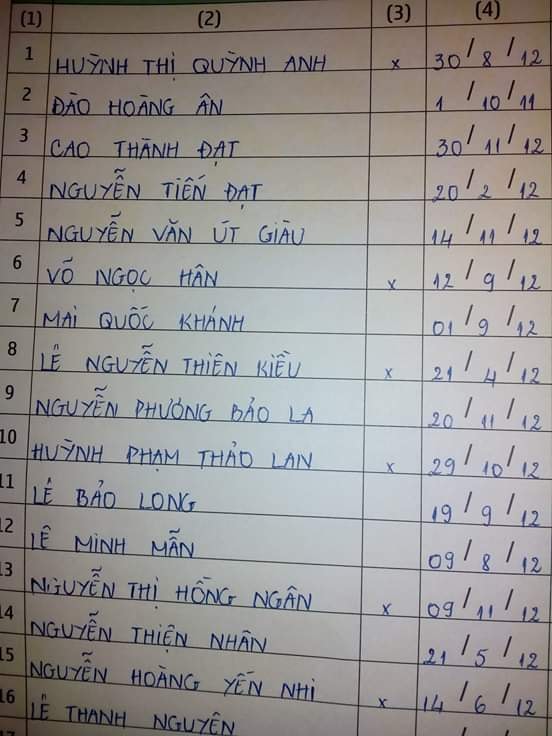 (1) (2) (3) (4)
1 HUỲNH THỊ QUỲNH ANH x 30/8/12
2 ĐÀO HOÀNG ÂN 1/10/11
3 CAO THÀNH ĐẠT 30/11/12
4 NGUYỄN TIẾN ĐẠT 20/2/12
5 NGUYỄN VĂN ÚT GIÀU 14/11/12
6 VÕ NGỌC HÂN x 12/9/12
7 MAI QUỐC KHÁNH 01/9/12
8 LÊ NGUYỄN THIÊN KIỀU x 21/4/12
9 NGUYỄN PHƯƠNG BẢO LA 20/11/12
10 HUỲNH PHẠM THẢO LAN x 29/10/12
11 LÊ BẢO LONG 19/9/12
12 LÊ MINH MẪN 09/8/12
13 NGUYỄN THỊ HỒNG NGÂN x 09/11/12
14 NGUYỄN THIỆN NHÂN 21/5/12
15 NGUYỄN HOÀNG YẾN NHI x 14/6/12
16 LÊ THANH NGUYÊN